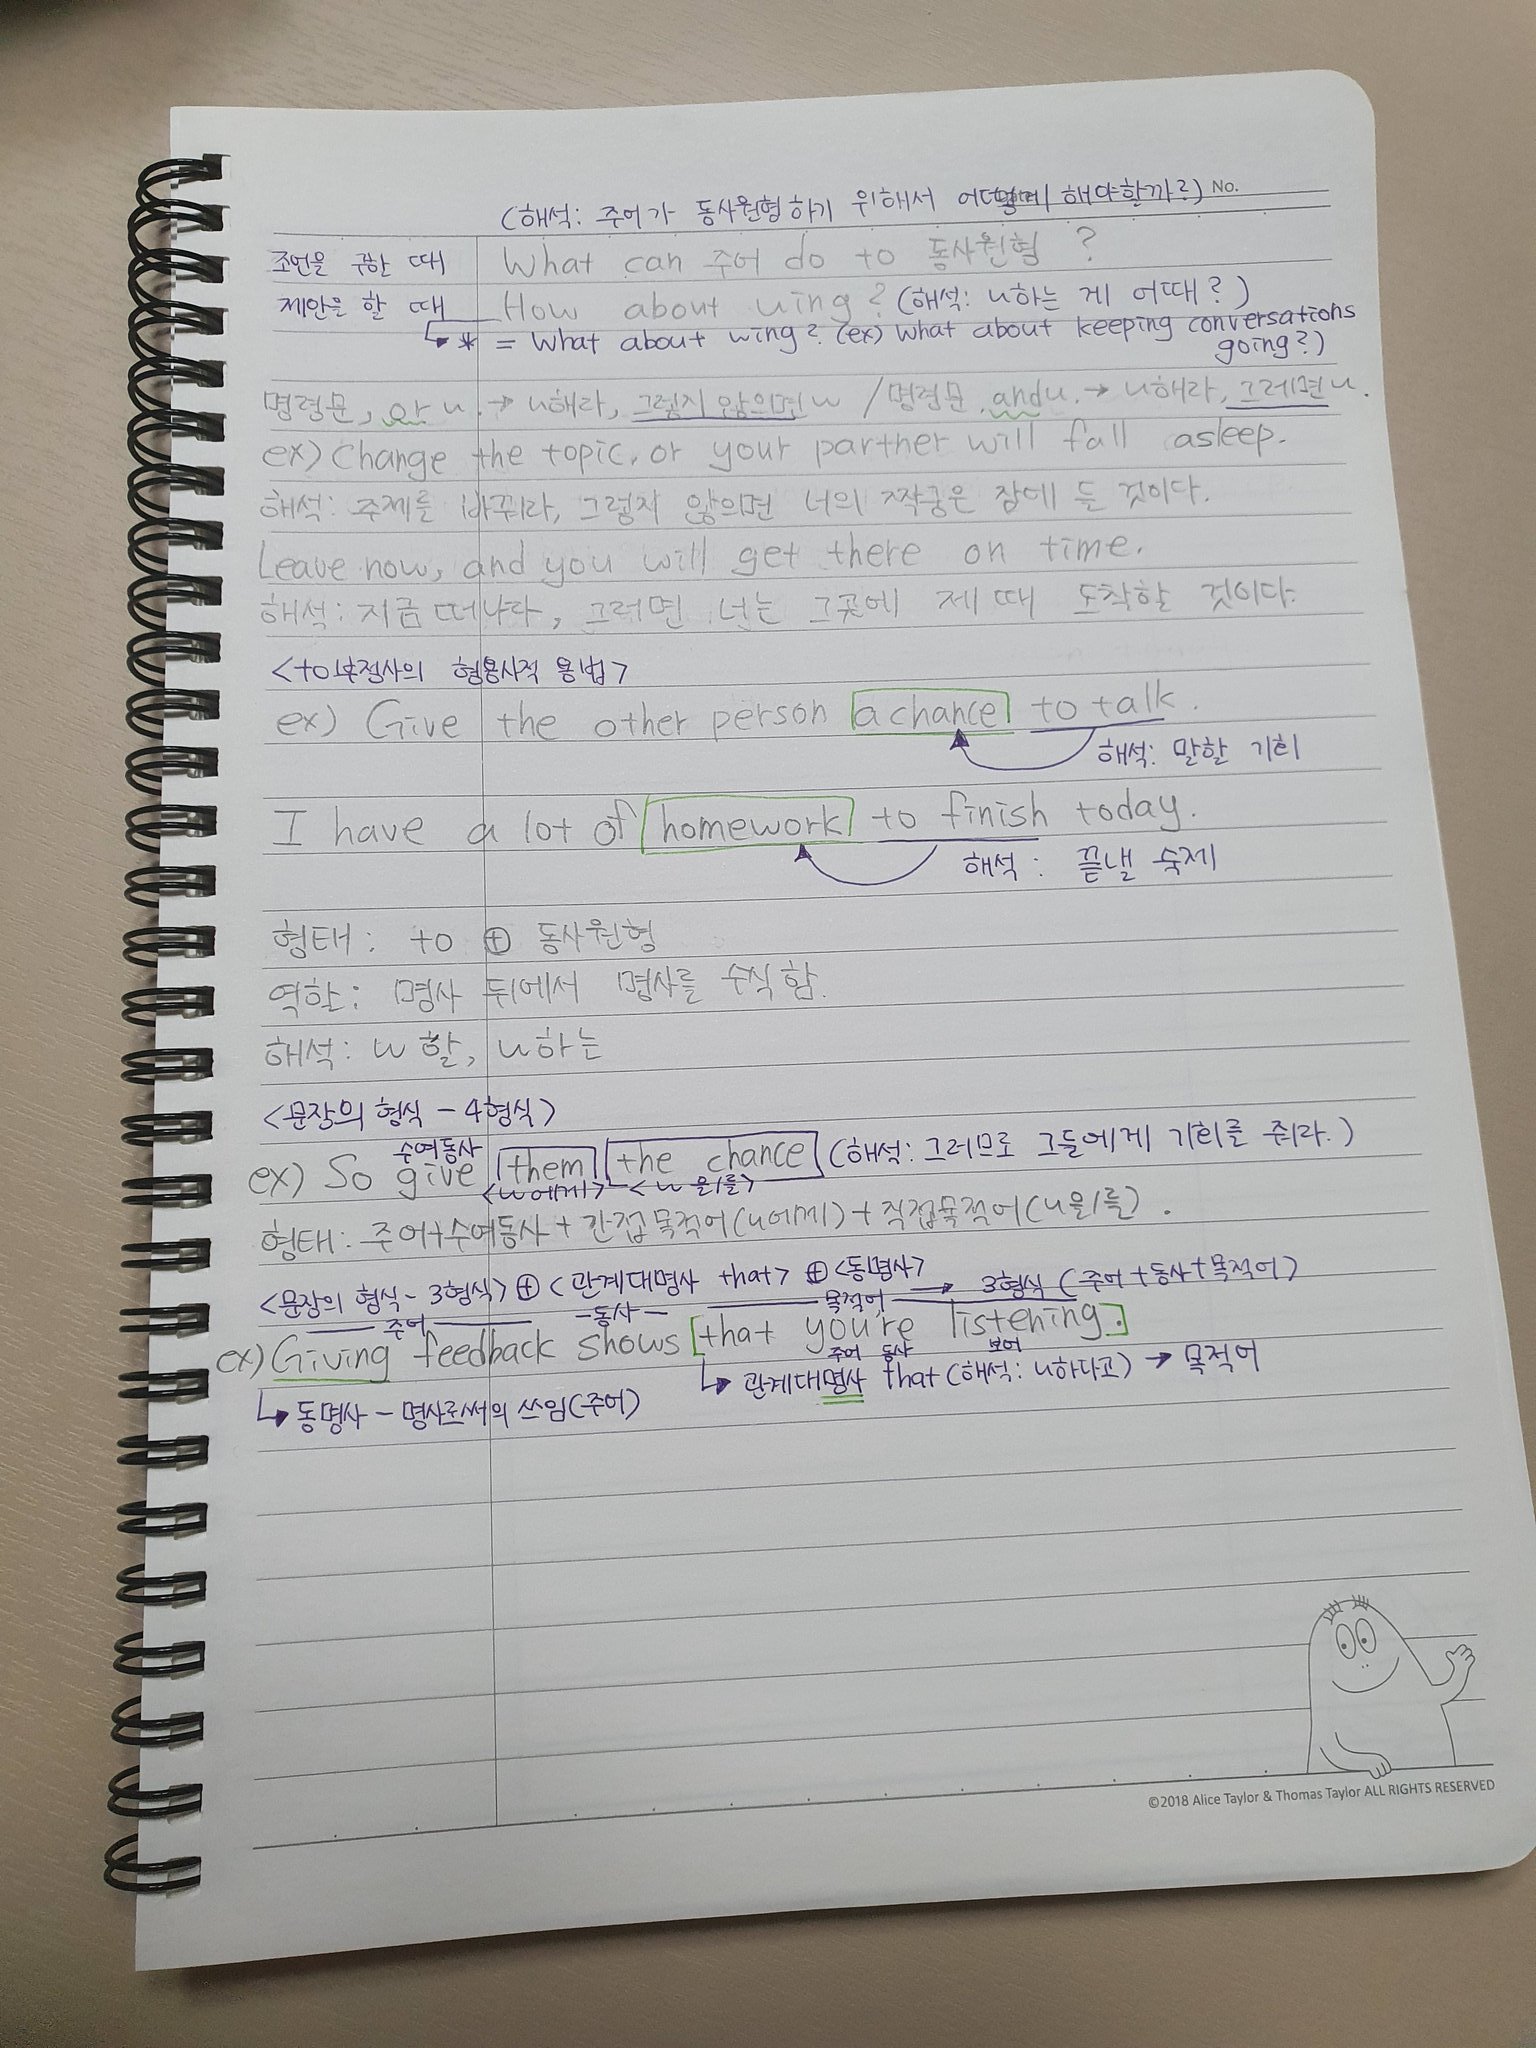 (해석: 주어가 동사원형하기 위해서 어떻게 해야할까?) No.
조언을 구한 때 What can 주어 do to 동사원형 ?
제안을 할 때 How about ~ing? (해석: ~하는 게 어때?)
* = What about ~ing? (ex) What about keeping conversations
going?)
명령문, or ~. → ~해라, 그렇지 않으면~ / 명령문, and~. → ~해라, 그러면~.
ex) Change the topic, or your partner will fall asleep.
해석: 주제를 바꿔라, 그렇지 않으면 너의 짝궁은 잠에 들 것이다.
Leave now, and you will get there on time.
해석: 지금 떠나라, 그러면 너는 그곳에 제 때 도착할 것이다.
<to부정사의 형용사적 용법>
ex) Give the other person a chance to talk.
해석: 말할 기회
I have a lot of homework to finish today.
해석: 끝낼 숙제
형태: to ⊕ 동사원형
역할: 명사 뒤에서 명사를 수식함.
해석: ~할, ~하는
<문장의 형식 - 4형식>
수여동사
ex) So give them the chance (해석: 그러므로 그들에게 기회를 줘라.)
<~에게> <~을/를>
형태: 주어+수여동사+간접목적어(~에게)+직접목적어(~을/를).
<문장의 형식 - 3형식> ⊕ <관계대명사 that> ⊕ <동명사> → 3형식 (주어+동사+목적어)
주어 동사 목적어
ex) Giving feedback shows [that you're listening.]
주어 동사 보어
↳ 관계대명사 that (해석: ~하다고) → 목적어
↳ 동명사 - 명사로써의 쓰임(주어)
©2018 Alice Taylor & Thomas Taylor ALL RIGHTS RESERVED